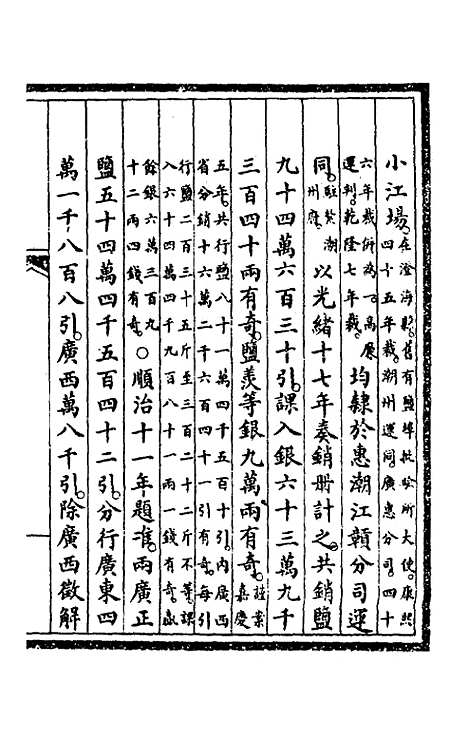 小江場。在澄海縣。舊有鹽埠批驗所大使。康熙
四十五年裁。潮州運同。廣惠分司。四十
六年裁併為一。高廉
運判。乾隆七年裁。均隸於惠潮江贛分司運
同。駐紮潮
州府。以光緒十七年奏銷冊計之。共銷鹽
九十四萬六百三十引。課入銀六十三萬九千
三百四十兩有奇。鹽羨等銀九萬兩有奇。謹案
嘉慶
五年。共行鹽八十一萬四千五百十引。內廣西
省分銷十六萬二千六百四十一引有奇。每引
行鹽二百三十五斤至三百二十二斤不等。課
入六十四萬四千九百八十一兩一錢有奇。羨
餘銀六萬三百九
十二兩四錢有奇。○順治十一年題准。兩廣正
鹽五十四萬四千五百四十二引。分行廣東四
萬一千八百八引。廣西萬八千引。除廣西徵解